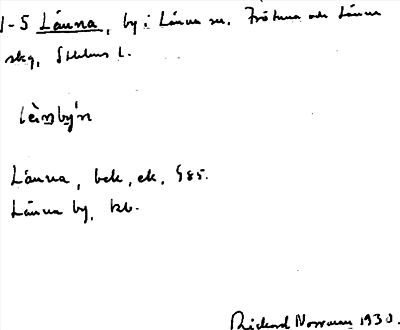 1-5 Länna, by i Länna sn. Frötuna och Länna
skg, Sthlms l.
lèn̥by̆ʹn
Länna, bek, ek, § 85.
Länna by, kb.
Rickard Norrman 1930.